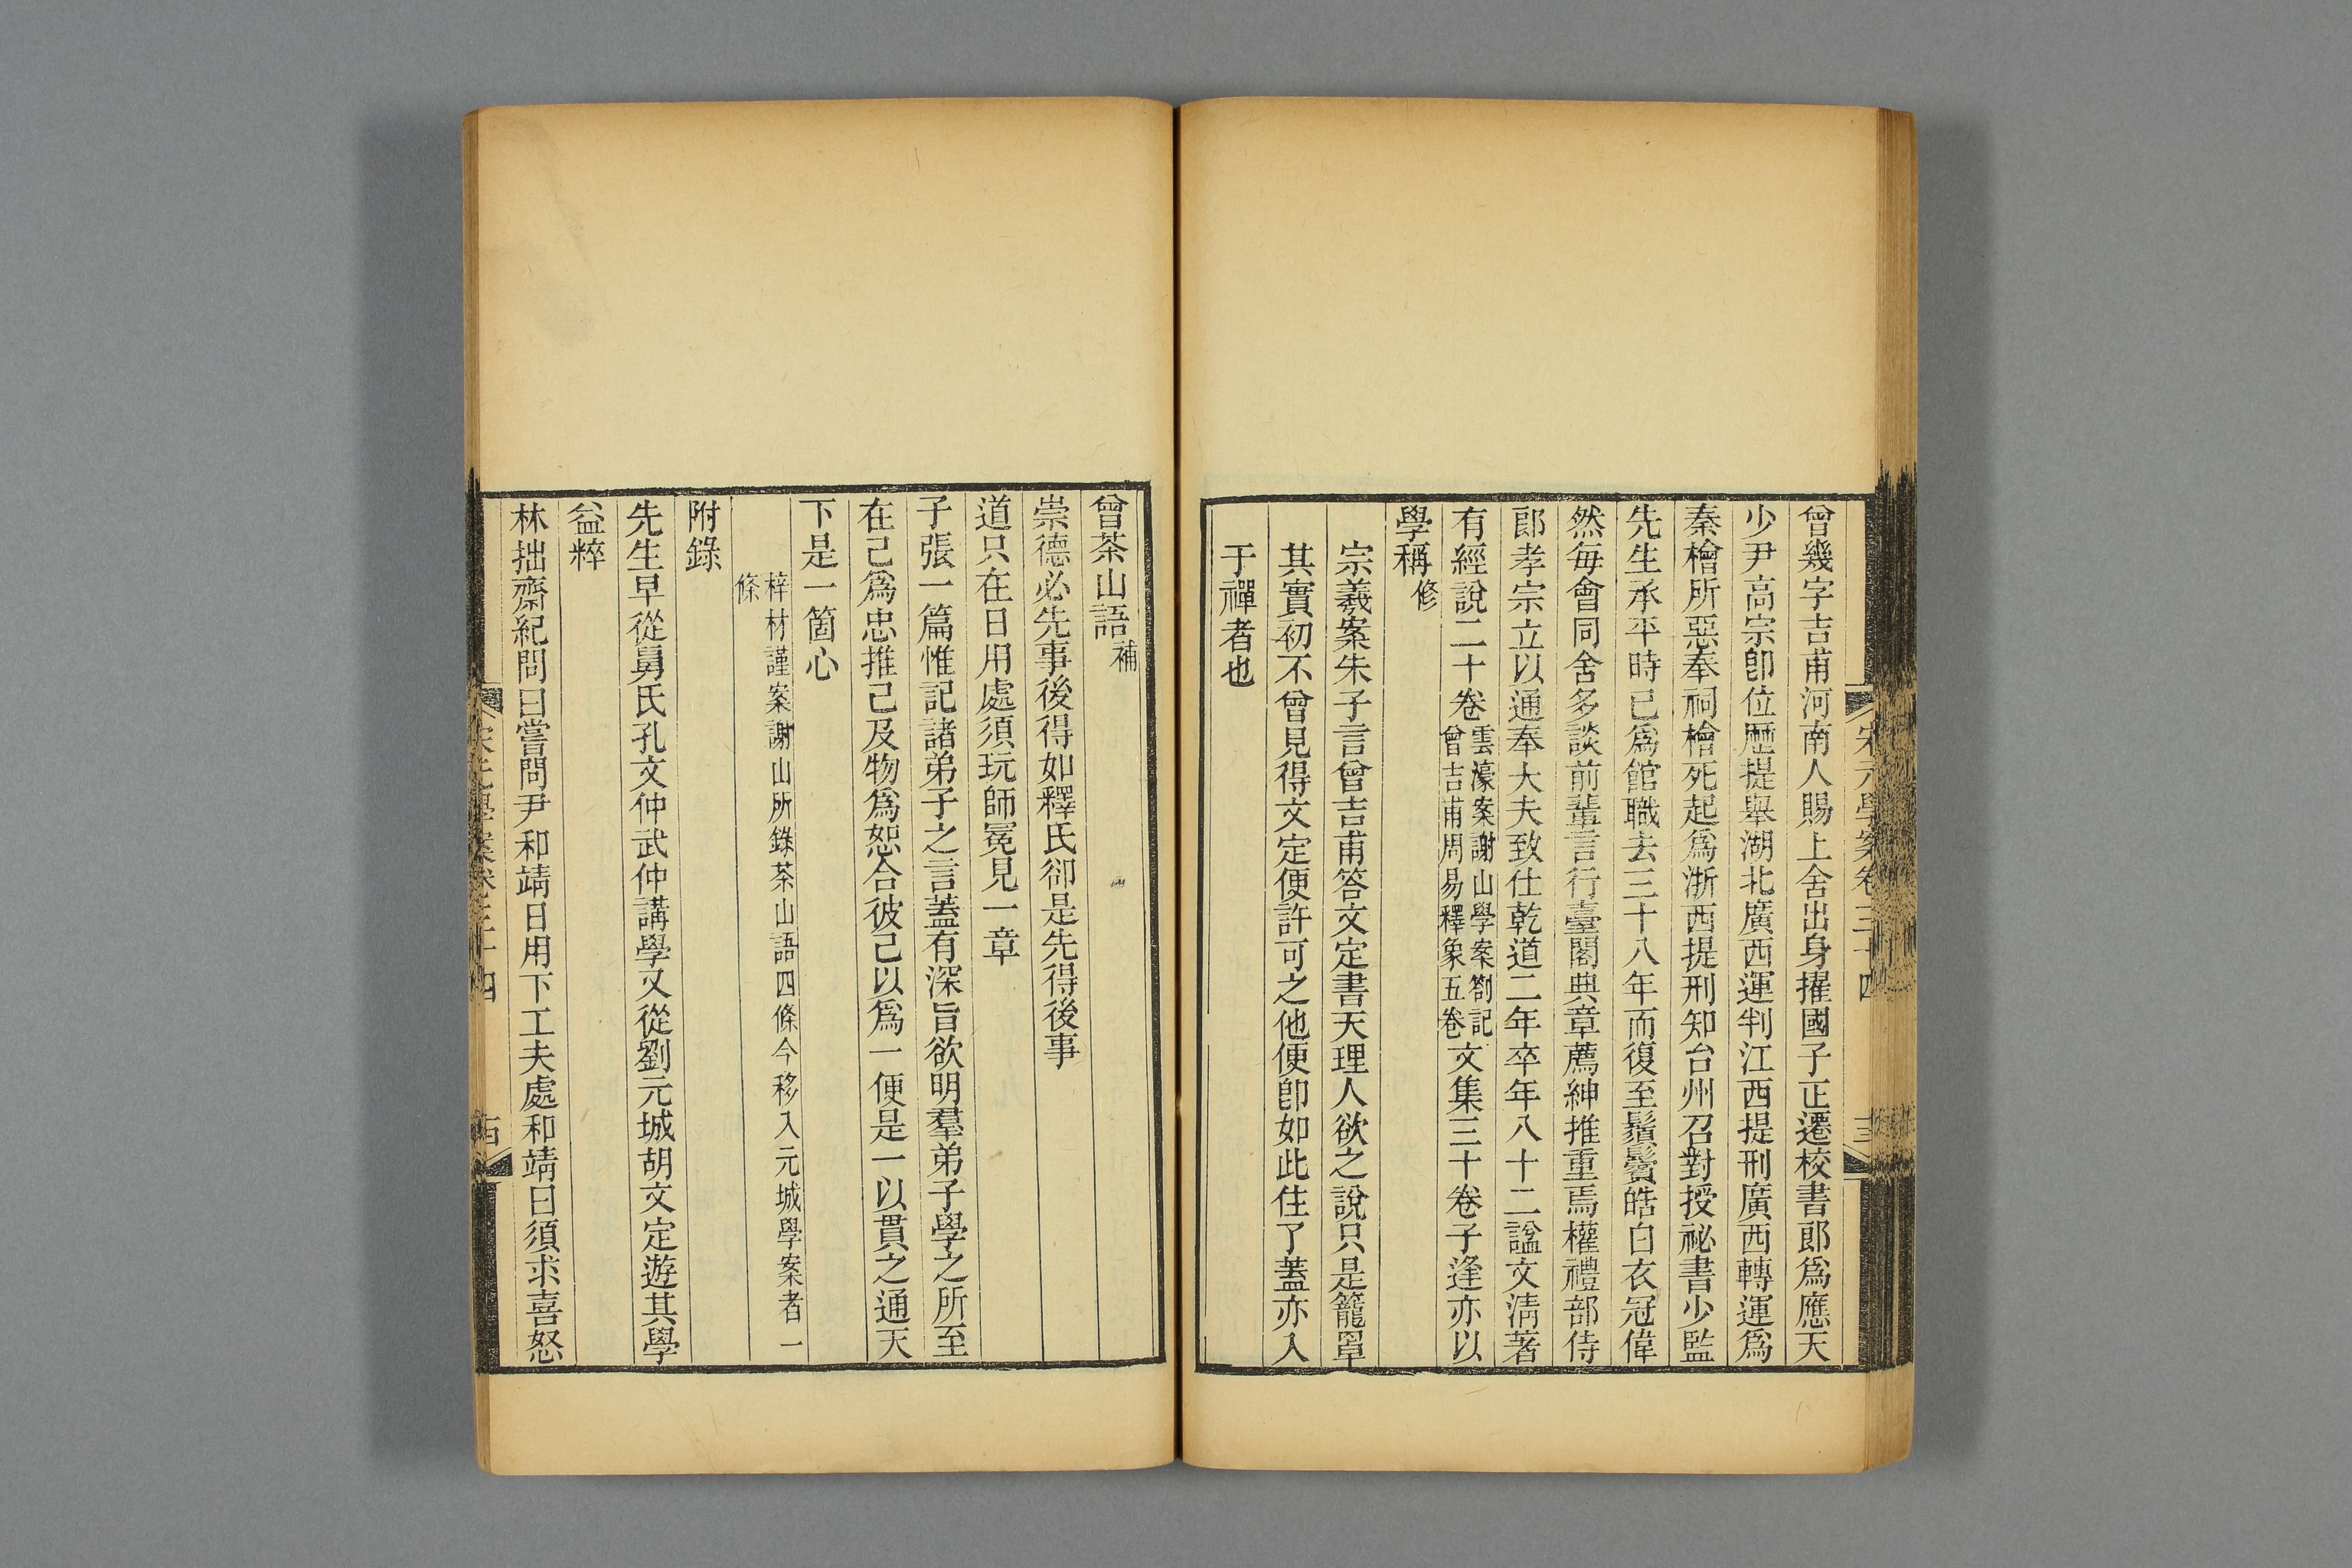 宋元學案卷三十四
曾幾字吉甫河南人賜上舍出身擢國子正遷校書郎爲應天
少尹高宗卽位歷提舉湖北廣西運判江西提刑廣西轉運爲
秦檜所惡奉祠檜死起爲浙西提刑知台州召對授祕書少監
先生承平時已爲館職去三十八年而復至鬚鬢皓白衣冠偉
然每會同舍多談前輩言行臺閣典章薦紳推重焉權禮部侍
郎孝宗立以通奉大夫致仕乾道二年卒年八十二諡文淸著
有經說二十卷雲濠案謝山學案劄記曾吉甫周易釋象五卷文集三十卷子逢亦以
學稱修
宗羲案朱子言曾吉甫答文定書天理人欲之說只是籠罩
其實初不曾見得文定便許可之他便卽如此住了蓋亦入
于禪者也
曾茶山語補
崇德必先事後得如釋氏卻是先得後事
道只在日用處須玩師冕見一章
子張一篇惟記諸弟子之言蓋有深旨欲明羣弟子學之所至
在己爲忠推己及物爲恕合彼己以爲一便是一以貫之通天
下是一箇心
梓材謹案謝山所錄茶山語四條今移入元城學案者一
條
附錄
先生早從舅氏孔文仲武仲講學又從劉元城胡文定遊其學
益粹
林拙齋紀問曰嘗問尹和靖日用下工夫處和靖曰須求喜怒
宋元學案卷三十四